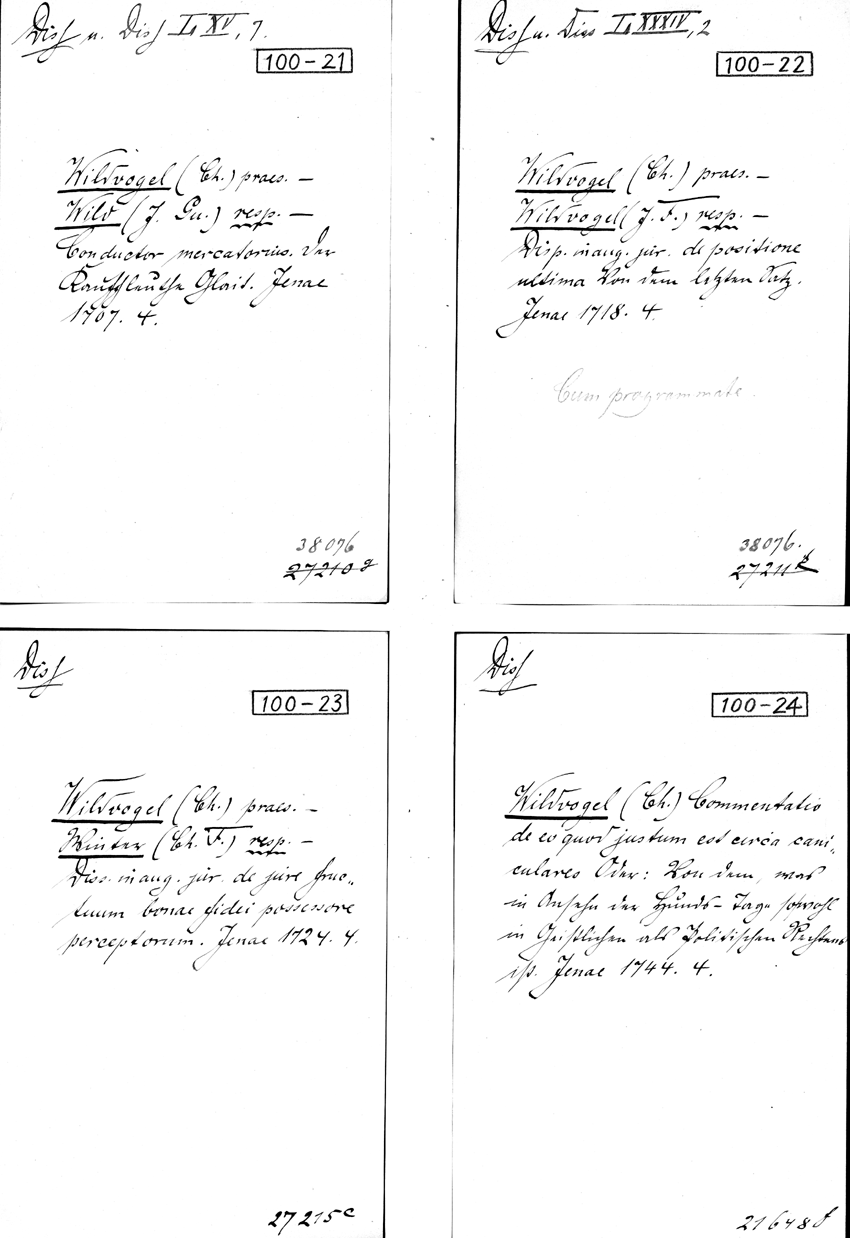 Diss u. Diss I, XV, 7.
100-21
Wildvogel (Ch.) praes. —
Wild (J. Gu.) resp. —
Conductor mercatorius. Der
Kauffleuthe Glait. Jenae
1707. 4.
38076
27210 g
Diss u. Diss I, XXXIV, 2
100-22
Wildvogel (Ch.) praes. —
Wildvogel (J. F.) resp. —
Disp. inaug. jur. de positione
ultima Von dem letzten Satz.
Jenae 1718. 4.
Cum programmate.
38076.
27211
Diss
100-23
Wildvogel (Ch.) praes. —
Winter (Ch. F.) resp. —
Diss. inaug. jur. de jure fruc„
tuum bonae fidei possessore
perceptorum. Jenae 1724. 4.
27215 c
Diss
100-24
Wildvogel (Ch.) Commentatio
de eo quod justum est circa cani„
culares Oder: Von dem, was
in Ansehn der Hunds-Tage sowohl
in Geistlichen als Politischen Rechtens
ist. Jenae 1744. 4.
21648 f